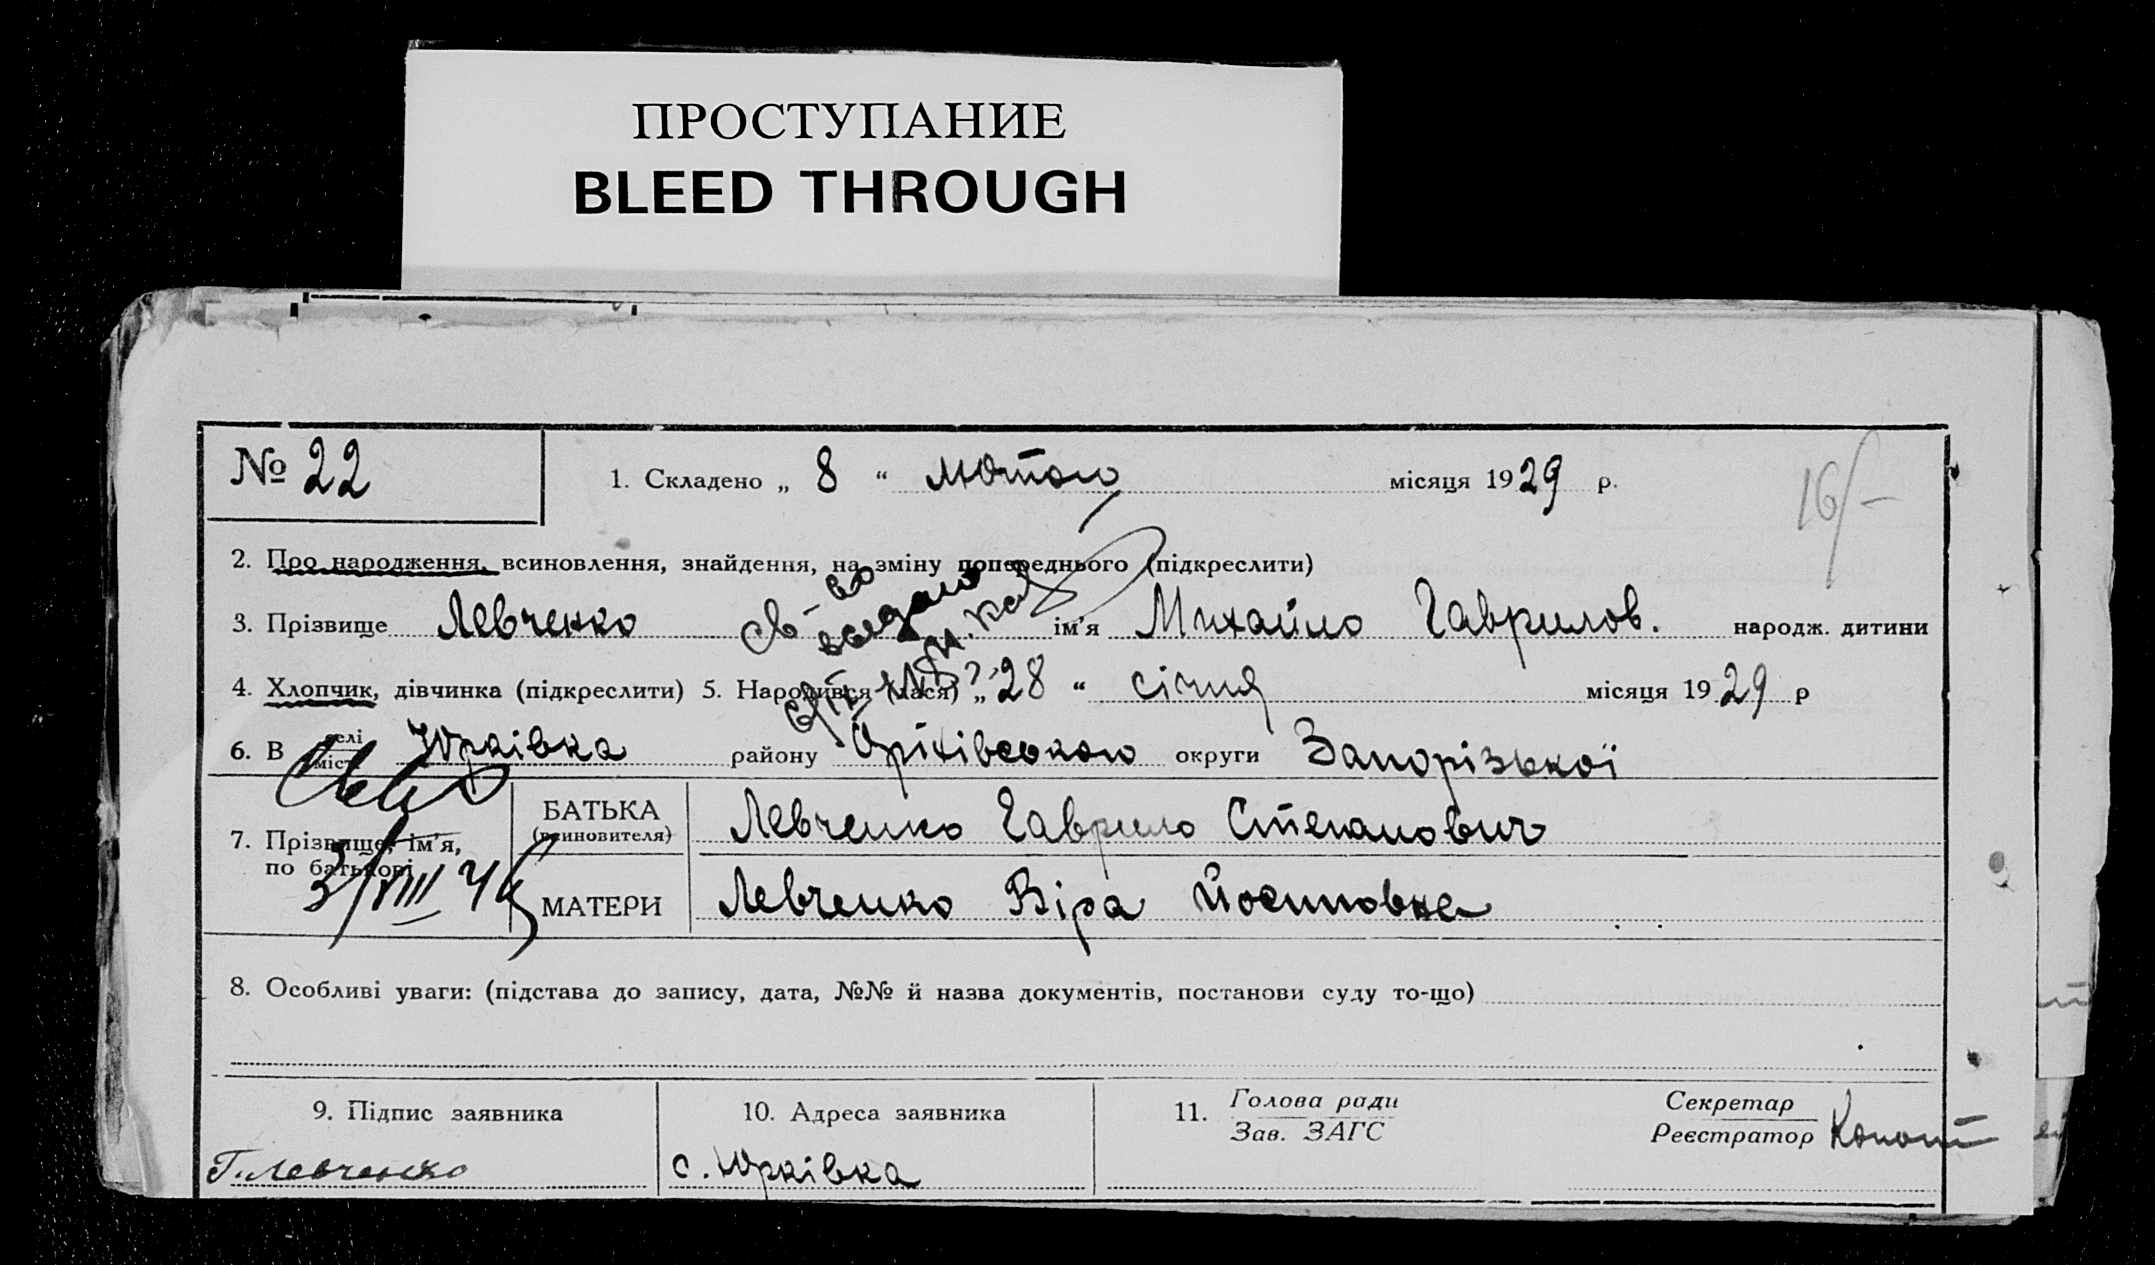 ПРОСТУПАНИЕ
BLEED THROUGH
№ 22
1. Складено „ 8 “ лютого місяця 1929 р.
16/-
2. Про народження, всиновлення, знайдення, на зміну попереднього (підкреслити)
3. Прізвище Левченко ім'я Михайло Гаврилов. народж. дитини
св-во выдано
4. Хлопчик, дівчинка (підкреслити) 5. Народився (лася) „ 28 “ січня місяця 1929 р
6. В селі міст Юрківка району Оріхівського округи Запорізької
7. Прізвище, ім'я, по батькові
БАТЬКА (всиновителя) Левченко Гаврило Степанович
3/VIII 45
МАТЕРИ Левченко Віра Йосиповна
8. Особливі уваги: (підстава до запису, дата, №№ й назва документів, постанови суду то-що)
9. Підпис заявника
10. Адреса заявника
11. Голова ради Зав. ЗАГС
Секретар Реєстратор
Г. Левченко
с. Юрківка